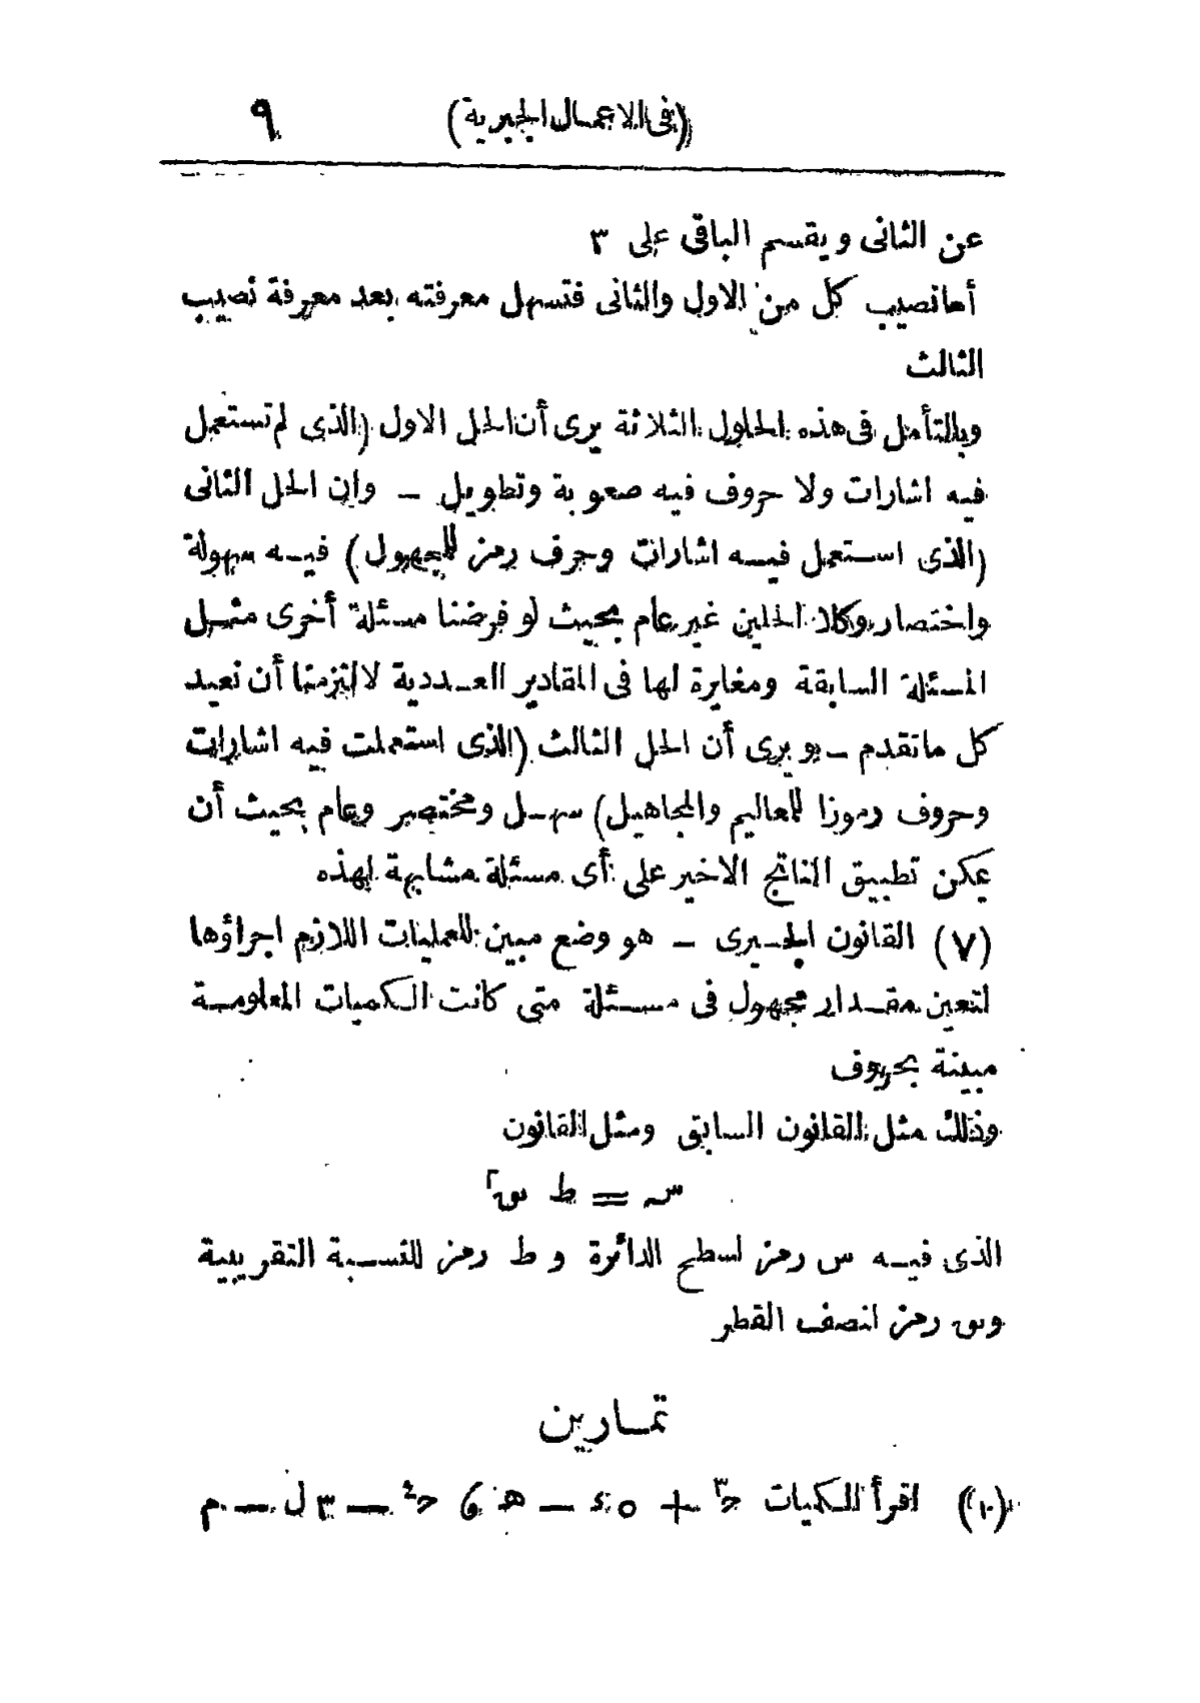 (فى الاعمال الجبرية) ٩
عن الثانى ويقسم الباقى على ٣
أما نصيب كل من الاول والثانى فتسهل معرفته بعد معرفة نصيب
الثالث
وبالتأمل فى هذه الحلول الثلاثة يرى أن الحل الاول (الذى لم تستعمل
فيه اشارات ولا حروف فيه صعوبة وتطويل ـ وان الحل الثانى
(الذى استعمل فيه اشارات وحرف رمز للمجهول) فيه سهولة
واختصار وكلا الحلين غير عام بحيث لو فرضنا مسئلة أخرى مثل
المسئلة السابقة ومغايرة لها فى المقادير العددية لالتزمنا أن نعيد
كل ما تقدم ـ ويرى أن الحل الثالث (الذى استعملت فيه اشارات
وحروف رموزا للمعاليم والمجاهيل) سهل ومختصر وعام بحيث أن
يمكن تطبيق الناتج الاخير على أى مسئلة مشابهة لهذه
(٧) القانون الجبرى ـ هو وضع مبين للعمليات اللازم اجراؤها
لتعين مقدار مجهول فى مسئلة متى كانت الكميات المعلومة
مبينة بحروف
وذلك مثل القانون السابق ومثل القانون
س = ط ںق٢
الذى فيه س رمز لسطح الدائرة و ط رمز للنسبة التقريبية
وںق رمز لنصف القطر
تمارين
(١٠) اقرأ الكميات حـ٣ + ٥ء ـ هـ و حـ٤ ـ ٣ل ـ م